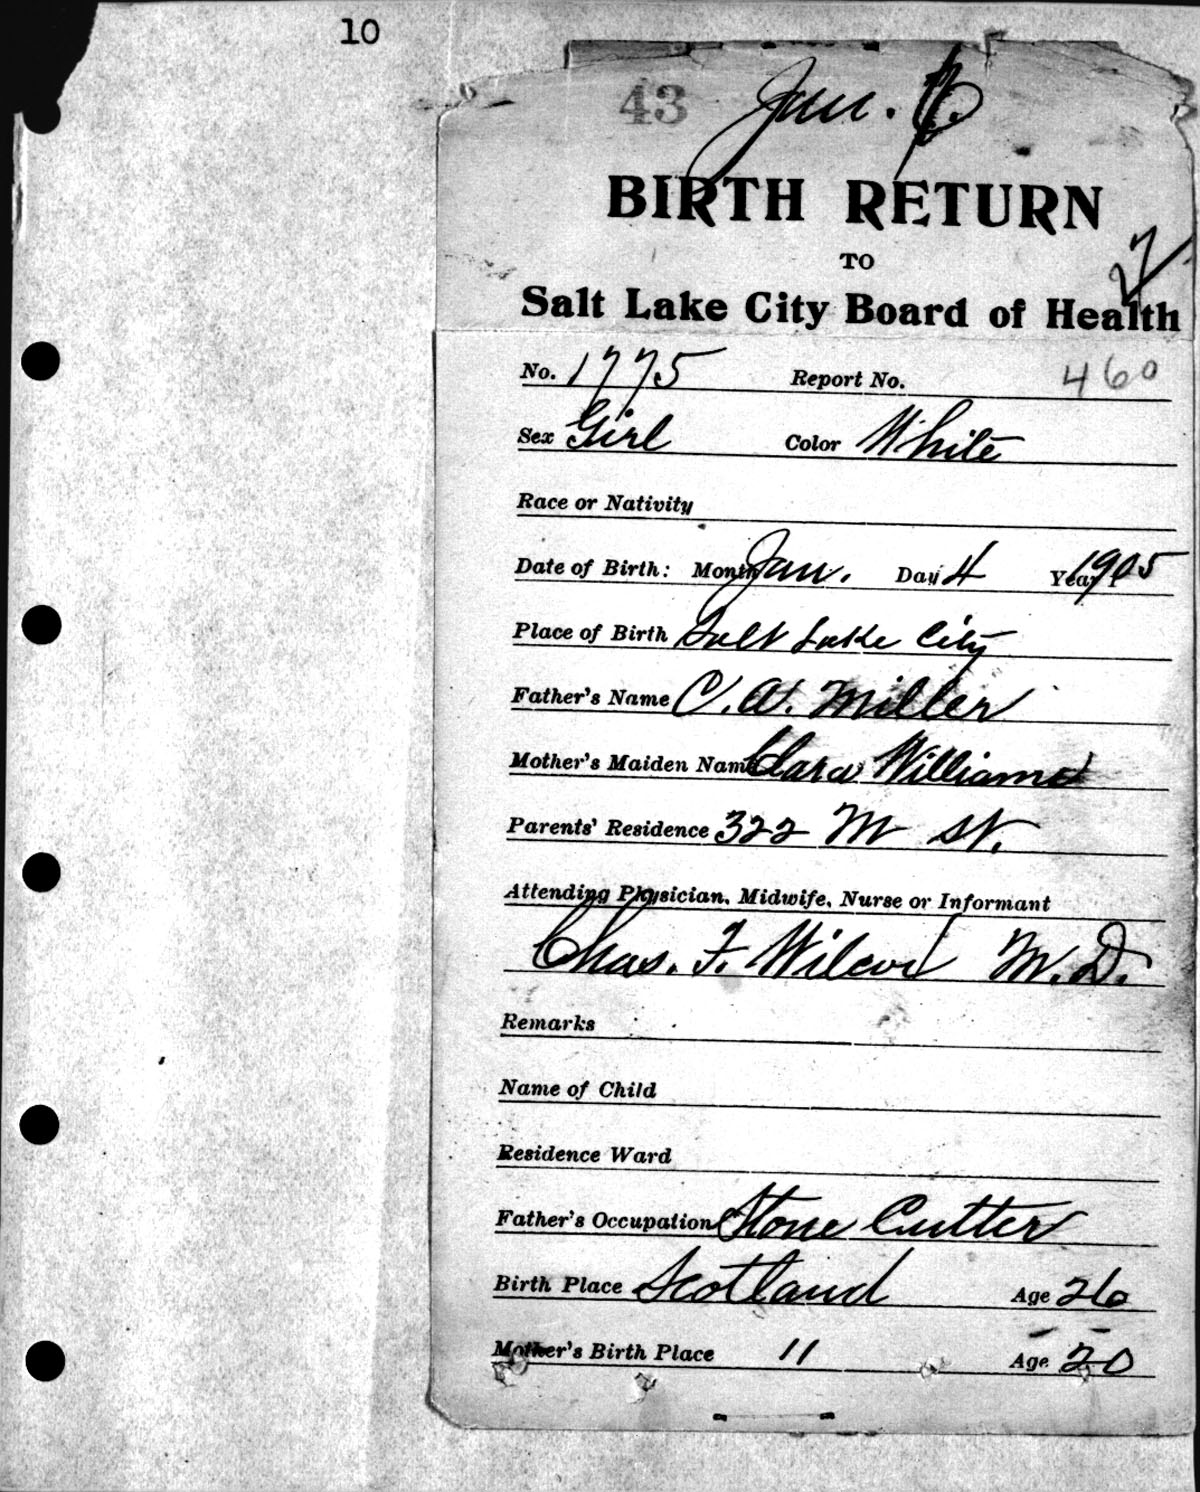 10
43 Jan.
BIRTH RETURN
TO
27
Salt Lake City Board of Health
No. 1775 Report No. 460
Sex Girl Color White
Race or Nativity
Date of Birth: Month Jan. Day 4 Year 1905
Place of Birth Salt Lake City
Father's Name C. W. Miller
Mother's Maiden Name Clara Williams
Parents' Residence 322 M St.
Attending Physician, Midwife, Nurse or Informant
Chas. F. Wilcox M.D.
Remarks
Name of Child
Residence Ward
Father's Occupation Stone Cutter
Birth Place Scotland Age 26
Mother's Birth Place " Age 20